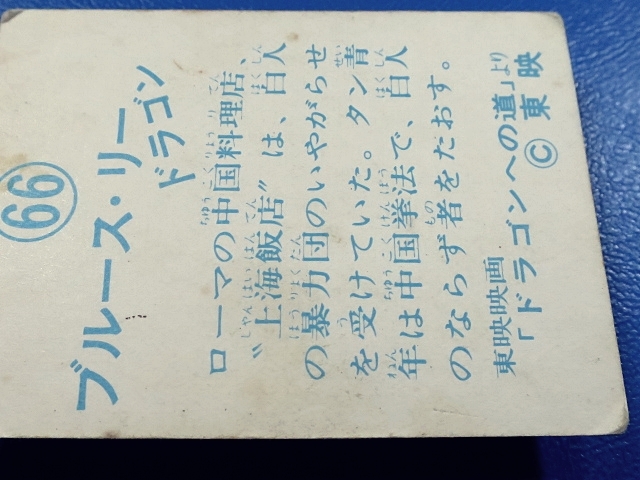 66
ブルース・リー
ドラゴン
ローマの中国料理店、
〝上海飯店〟は、白人
の暴力団のいやがらせ
を受けていた。タン青
年は中国拳法で、白人
のならず者をたおす。
東映映画
「ドラゴンへの道」より
©東映